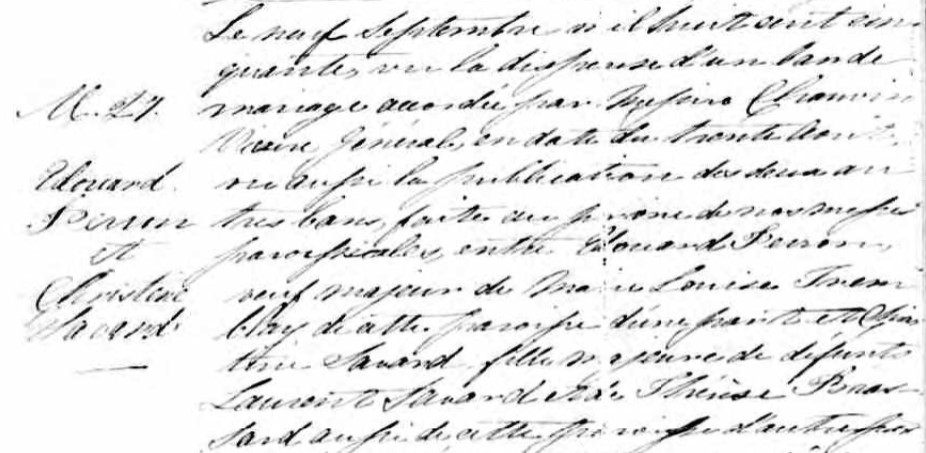 M. 27.
Edouard
Perron
et
Christine
Savard
Le neuf Septembre mil huit cent cin
quante, vu la dispense d'un ban de
mariage accordée par Messire Chauvin
Vicaire Général, en date du trente Août,
vu aussi la publication des deux au
tres bans, faite au prône de nos messes
paroissiales, entre Edouard Perron,
veuf majeur de Marie Louise Trem
blay de cette paroisse d'une part et Chris
tine Savard fille majeure de défunts
Laurent Savard et de Thérèse Bras
sard aussi de cette paroisse d'autre part